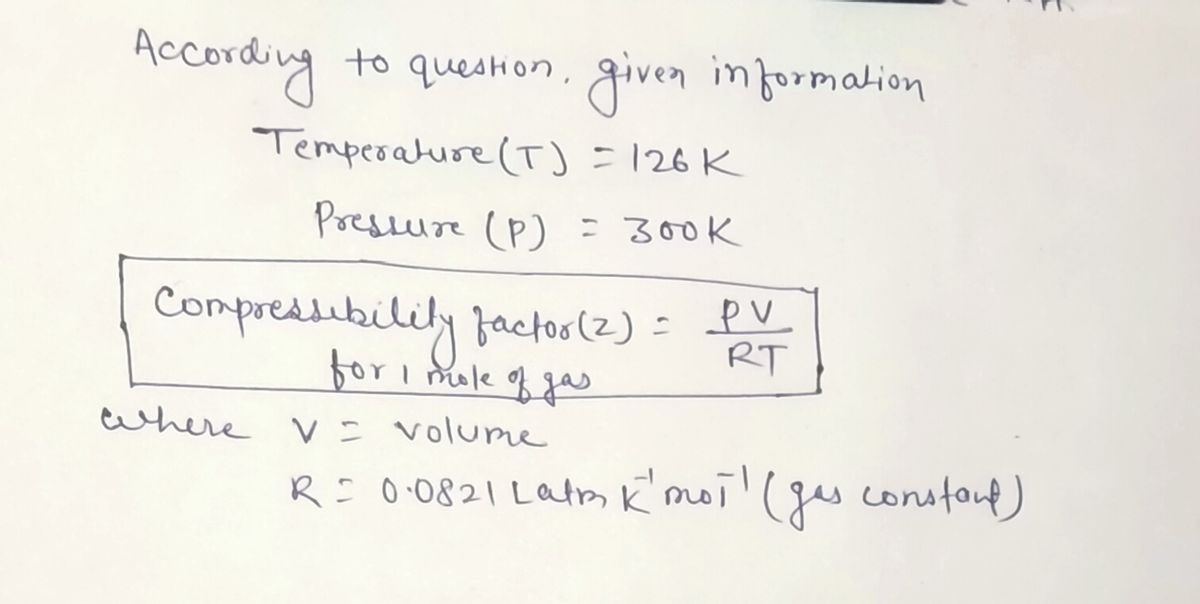 According to question, given information
Temperature (T) = 126 K
Pressure (P) = 300K
Compressibility factor (z) = PV/RT
for 1 mole of gas
where V = volume
R = 0.0821 L atm K⁻¹ mol⁻¹ (gas constant)